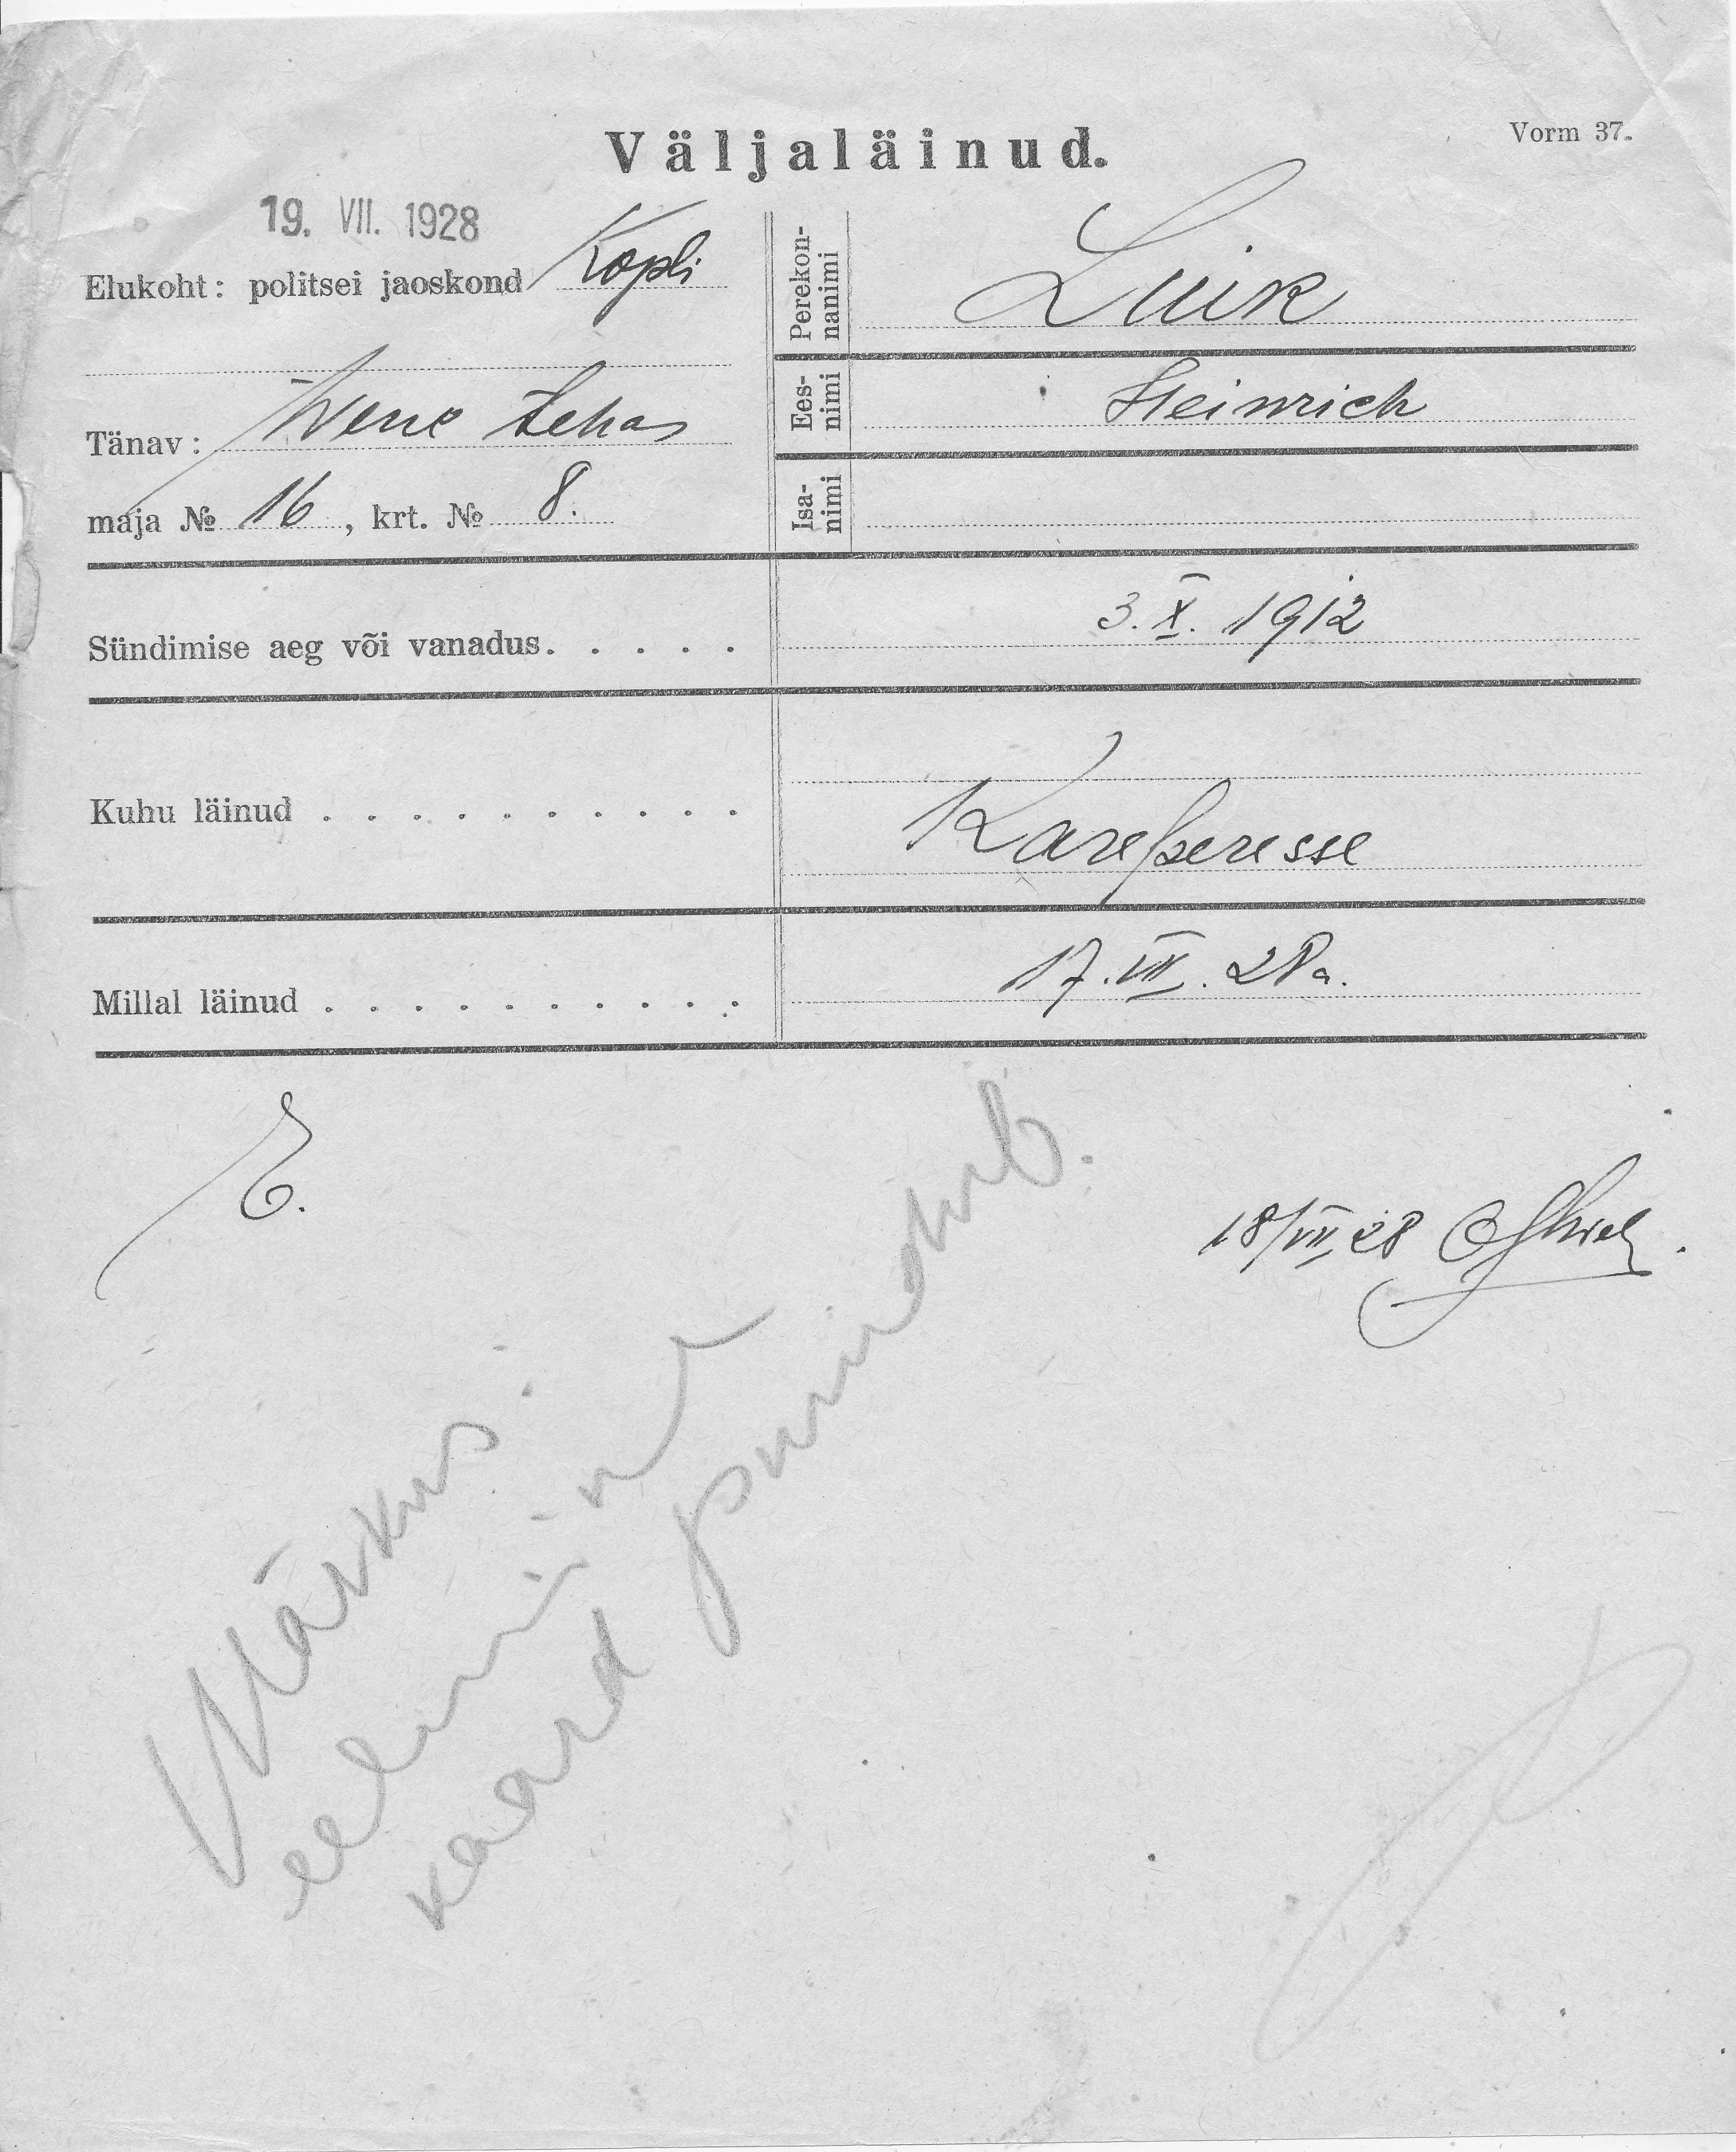 Väljaläinud.
Vorm 37.
19. VII. 1928
Elukoht: politsei jaoskond Kopli
Tänav: Wene tehas
maja № 16, krt. № 8.
Perekon-
nanimi
Luik
Ees-
nimi
Heinrich
Isa-
nimi
Sündimise aeg või vanadus. . . . . 3. X. 1912
Kuhu läinud . . . . . . . . . . Kareperesse
Millal läinud . . . . . . . . . . 17. VII. 28 a.
E.
18/VII 28
Märkus:
eelmine
kaard puudub.